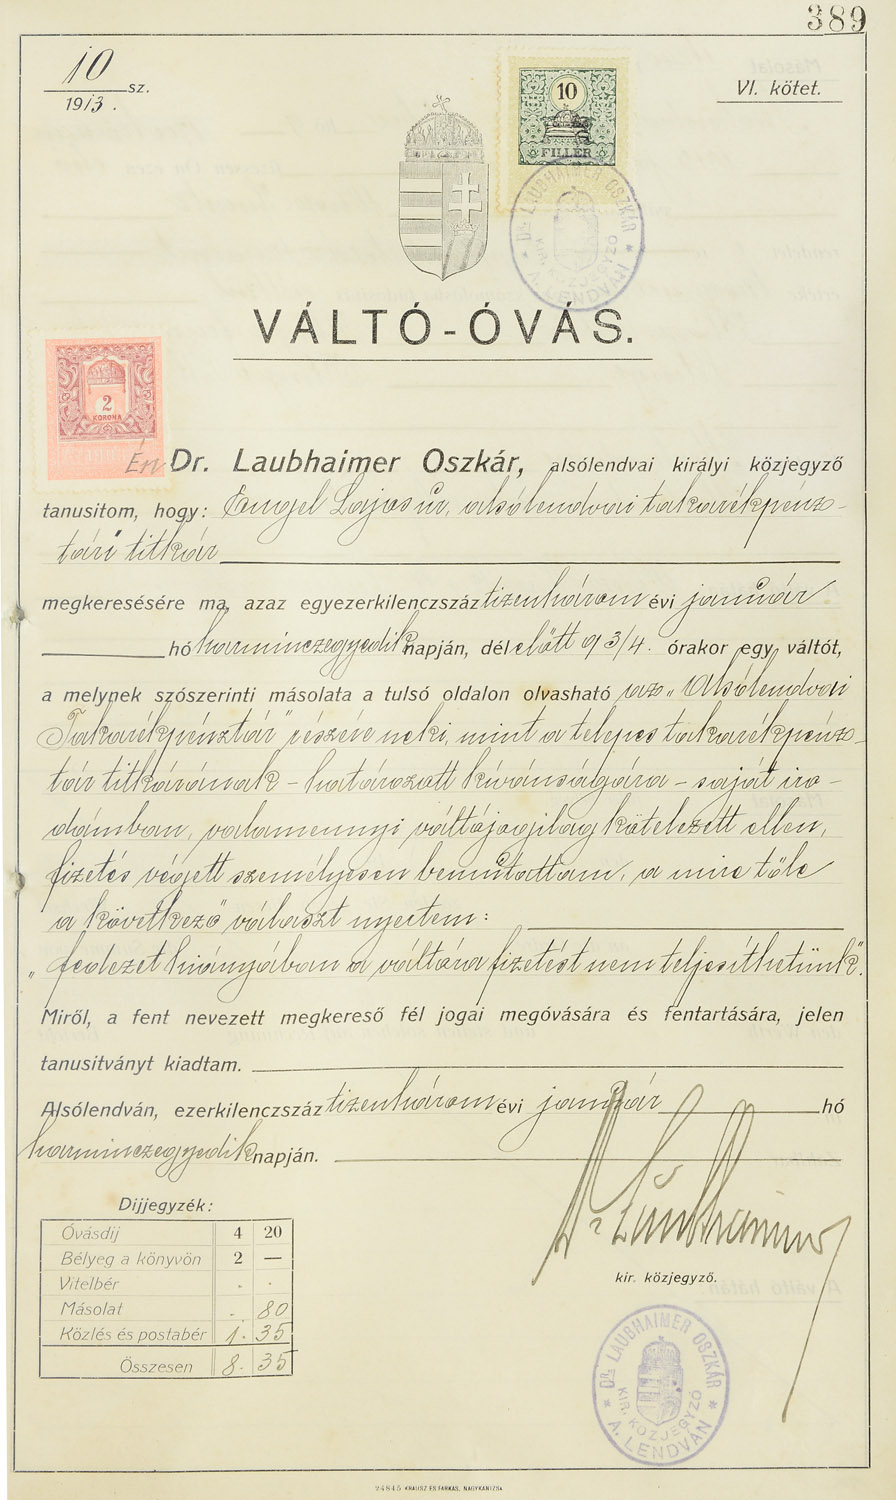 389
10 sz.
1913.
VI. kötet.
10
FILLÉR
DR. LAUBHAIMER OSZKÁR
KIR. KÖZJEGYZŐ
A. LENDVÁN
VÁLTÓ-ÓVÁS.
2
KORONA
Én Dr. Laubhaimer Oszkár, alsólendvai királyi közjegyző
tanusitom, hogy: Engel Lajos úr, alsólendvai takarékpénz-
tári titkár
megkeresésére ma, azaz egyezerkilenczszáz tizenhárom évi január
hó harminczegyedik napján, dél előtt 9 3/4. órakor egy váltót,
a melynek szószerinti másolata a tulsó oldalon olvasható az „Alsólendvai
Takarékpénztár" részére neki, mint a telepes takarékpénz-
tár titkárának – határozott kívánságára – saját iro-
dámban, valamennyi váltójogilag kötelezett ellen,
fizetés végett személyesen bemutattam, a mire tőle
a következő választ nyertem:
„fedezet hiányában a váltóra fizetést nem teljesíthetünk".
Miről, a fent nevezett megkereső fél jogai megóvására és fentartására, jelen
tanusitványt kiadtam.
Alsólendván, ezerkilenczszáz tizenhárom évi január hó
harminczegyedik napján.
Dr Laubhaimer
kir. közjegyző.
Dijjegyzék:
Óvásdij 4 20
Bélyeg a könyvön 2 —
Vitelbér . .
Másolat . 80
Közlés és postabér 1. 35
Összesen 8. 35
DR. LAUBHAIMER OSZKÁR
KIR. KÖZJEGYZŐ
A. LENDVÁN
24845 KRAUSZ ÉS FARKAS, NAGYKANIZSA